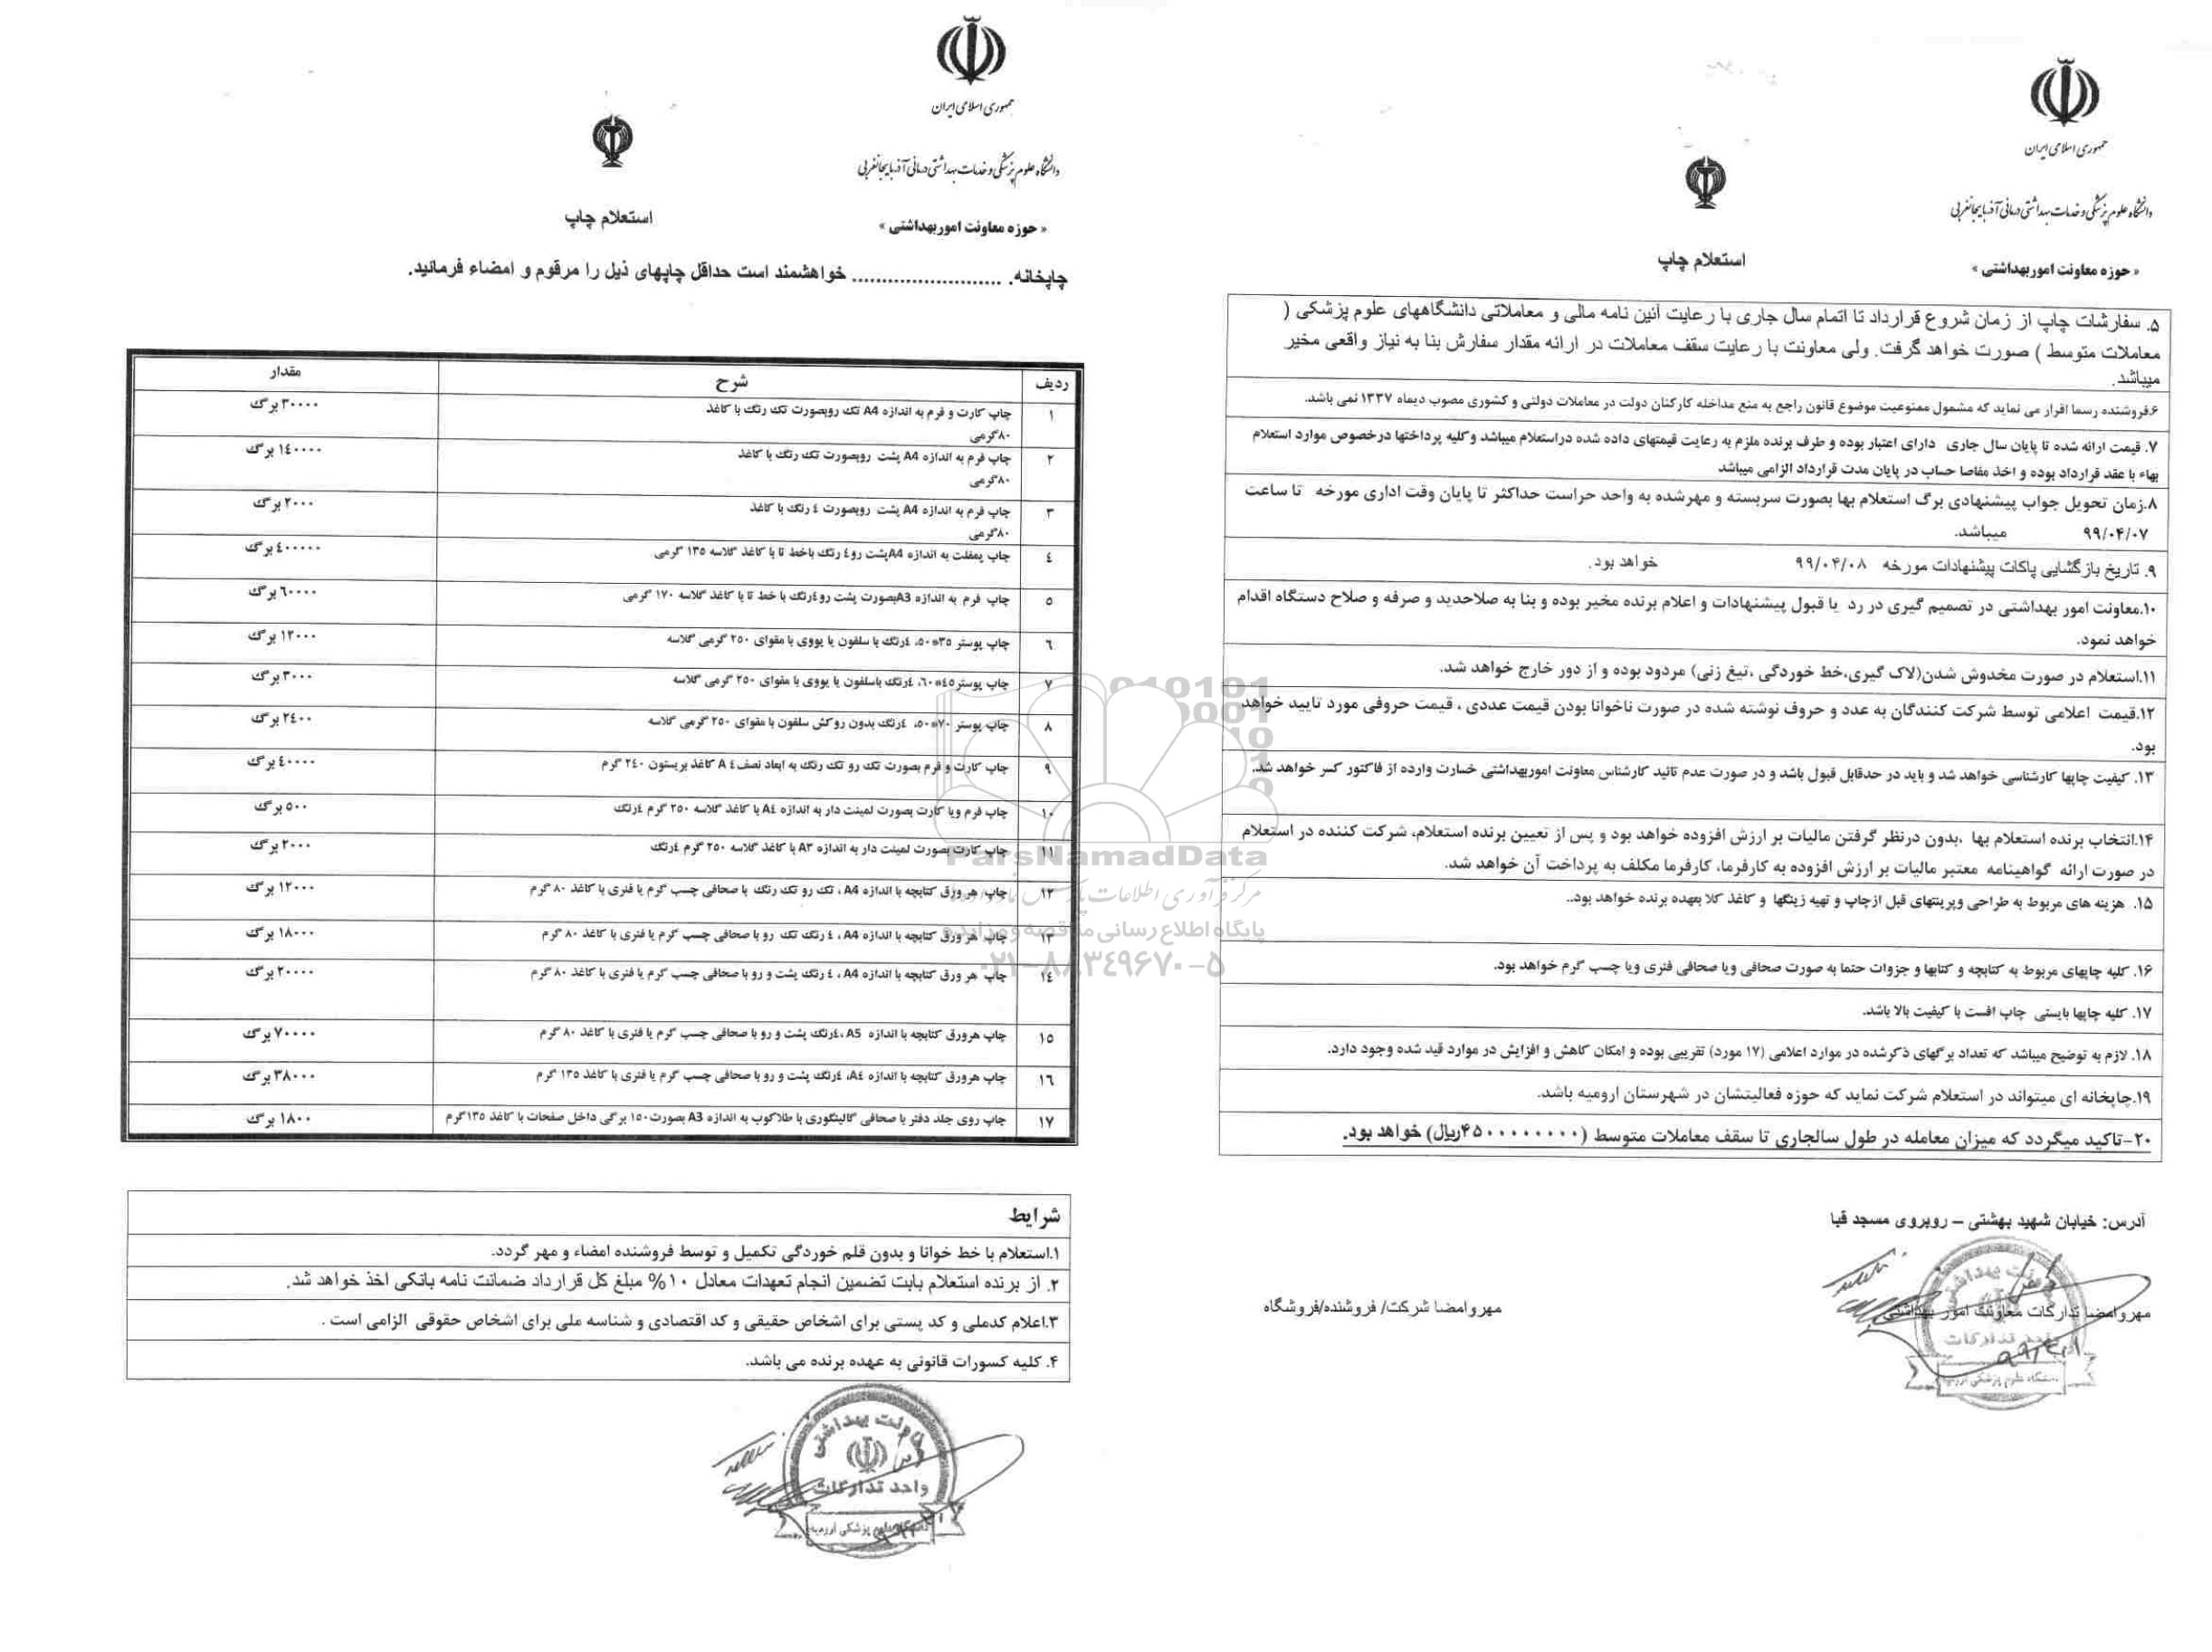 جمهوری اسلامی ایران
دانشگاه علوم پزشکی و خدمات بهداشتی درمانی آذربایجانغربی
« حوزه معاونت امور بهداشتی »
استعلام چاپ
چاپخانه. ......................... خواهشمند است حداقل چاپهای ذیل را مرقوم و امضاء فرمائید.
ردیف شرح مقدار
۱ چاپ کارت و فرم به اندازه A4 تک روبصورت تک رنگ با کاغذ ۳۰۰۰۰ برگ
۸۰گرمی
۲ چاپ فرم به اندازه A4 پشت روبصورت تک رنگ با کاغذ ۱٤۰۰۰۰ برگ
۸۰گرمی
۳ چاپ فرم به اندازه A4 پشت روبصورت ٤ رنگ با کاغذ ۲۰۰۰ برگ
۸۰گرمی
٤ چاپ پمفلت به اندازه A4پشت رو٤ رنگ باخط تا با کاغذ گلاسه ۱۳۵ گرمی ٤۰۰۰۰۰برگ
۵ چاپ فرم به اندازه A3بصورت پشت رو٤رنگ با خط تا با کاغذ گلاسه ۱۷۰ گرمی ٦۰۰۰۰برگ
٦ چاپ پوستر ۳۵*۵۰، ٤رنگ با سلفون یا یووی با مقوای ۲۵۰ گرمی گلاسه ۱۲۰۰۰ برگ
۷ چاپ پوستر٤۵*٦۰، ٤رنگ باسلفون یا یووی با مقوای ۲۵۰ گرمی گلاسه ۳۰۰۰برگ
۸ چاپ پوستر ۷۰*۵۰، ٤رنگ بدون روکش سلفون با مقوای ۲۵۰ گرمی گلاسه ۲٤۰۰ برگ
۹ چاپ کارت و فرم بصورت تک رو تک رنگ به ابعاد نصف A ٤ کاغذ بریستون ۲٤۰ گرم ٤۰۰۰۰برگ
۱۰ چاپ فرم ویا کارت بصورت لمینت دار به اندازه A٤ با کاغذ گلاسه ۲۵۰ گرم ٤رنگ ۵۰۰ برگ
۱۱ چاپ کارت بصورت لمینت دار به اندازه A۳ با کاغذ گلاسه ۲۵۰ گرم ٤رنگ ۲۰۰۰ برگ
۱۲ چاپ هر ورق کتابچه با اندازه A4 ، تک رو تک رنگ با صحافی چسب گرم یا فنری با کاغذ ۸۰ گرم ۱۲۰۰۰ برگ
۱۳ چاپ هر ورق کتابچه با اندازه A4 ، ٤ رنگ تک رو با صحافی چسب گرم یا فنری با کاغذ ۸۰ گرم ۱۸۰۰۰ برگ
۱٤ چاپ هر ورق کتابچه با اندازه A4 ، ٤ رنگ پشت و رو با صحافی چسب گرم یا فنری با کاغذ ۸۰ گرم ۲۰۰۰۰ برگ
۱۵ چاپ هرورق کتابچه با اندازه A5 ،٤رنگ پشت و رو با صحافی چسب گرم یا فنری با کاغذ ۸۰ گرم ۷۰۰۰۰برگ
۱٦ چاپ هرورق کتابچه با اندازه A٤، ٤رنگ پشت و رو با صحافی چسب گرم یا فنری با کاغذ ۱۳۵ گرم ۳۸۰۰۰برگ
۱۷ چاپ روی جلد دفتر با صحافی گالینگوری با طلاکوب به اندازه A3 بصورت۱۵۰ برگی داخل صفحات با کاغذ ۱۳۵گرم ۱۸۰۰ برگ
شرایط
۱.استعلام با خط خوانا و بدون قلم خوردگی تکمیل و توسط فروشنده امضاء و مهر گردد.
۲. از برنده استعلام بابت تضمین انجام تعهدات معادل ۱۰% مبلغ کل قرارداد ضمانت نامه بانکی اخذ خواهد شد.
۳.اعلام کدملی و کد پستی برای اشخاص حقیقی و کد اقتصادی و شناسه ملی برای اشخاص حقوقی الزامی است .
۴. کلیه کسورات قانونی به عهده برنده می باشد.
معاونت بهداشتی
واحد تدارکات
دانشگاه علوم پزشکی ارومیه
جمهوری اسلامی ایران
دانشگاه علوم پزشکی و خدمات بهداشتی درمانی آذربایجانغربی
« حوزه معاونت امور بهداشتی »
استعلام چاپ
۵. سفارشات چاپ از زمان شروع قرارداد تا اتمام سال جاری با رعایت آئین نامه مالی و معاملاتی دانشگاههای علوم پزشکی (
معاملات متوسط ) صورت خواهد گرفت. ولی معاونت با رعایت سقف معاملات در ارائه مقدار سفارش بنا به نیاز واقعی مخیر
میباشد.
۶.فروشنده رسما اقرار می نماید که مشمول ممنوعیت موضوع قانون راجع به منع مداخله کارکنان دولت در معاملات دولتی و کشوری مصوب دیماه ۱۳۳۷ نمی باشد.
۷. قیمت ارائه شده تا پایان سال جاری دارای اعتبار بوده و طرف برنده ملزم به رعایت قیمتهای داده شده دراستعلام میباشد وکلیه پرداختها درخصوص موارد استعلام
بهاء با عقد قرارداد بوده و اخذ مفاصا حساب در پایان مدت قرارداد الزامی میباشد
۸.زمان تحویل جواب پیشنهادی برگ استعلام بها بصورت سربسته و مهرشده به واحد حراست حداکثر تا پایان وقت اداری مورخه تا ساعت
۹۹/۰۴/۰۷ میباشد.
۹. تاریخ بازگشایی پاکات پیشنهادات مورخه ۹۹/۰۴/۰۸ خواهد بود.
۱۰.معاونت امور بهداشتی در تصمیم گیری در رد یا قبول پیشنهادات و اعلام برنده مخیر بوده و بنا به صلاحدید و صرفه و صلاح دستگاه اقدام
خواهد نمود.
۱۱.استعلام در صورت مخدوش شدن(لاک گیری،خط خوردگی ،تیغ زنی) مردود بوده و از دور خارج خواهد شد.
۱۲.قیمت اعلامی توسط شرکت کنندگان به عدد و حروف نوشته شده در صورت ناخوانا بودن قیمت عددی ، قیمت حروفی مورد تایید خواهد
بود.
۱۳. کیفیت چاپها کارشناسی خواهد شد و باید در حدقابل قبول باشد و در صورت عدم تائید کارشناس معاونت اموربهداشتی خسارت وارده از فاکتور کسر خواهد شد.
۱۴.انتخاب برنده استعلام بها ،بدون درنظر گرفتن مالیات بر ارزش افزوده خواهد بود و پس از تعیین برنده استعلام، شرکت کننده در استعلام
در صورت ارائه گواهینامه معتبر مالیات بر ارزش افزوده به کارفرما، کارفرما مکلف به پرداخت آن خواهد شد.
۱۵. هزینه های مربوط به طراحی وپرینتهای قبل ازچاپ و تهیه زینگها و کاغذ کلا بعهده برنده خواهد بود..
۱۶. کلیه چاپهای مربوط به کتابچه و کتابها و جزوات حتما به صورت صحافی ویا صحافی فنری ویا چسب گرم خواهد بود.
۱۷. کلیه چاپها بایستی چاپ افست با کیفیت بالا باشد.
۱۸. لازم به توضیح میباشد که تعداد برگهای ذکرشده در موارد اعلامی (۱۷ مورد) تقریبی بوده و امکان کاهش و افزایش در موارد قید شده وجود دارد.
۱۹.چاپخانه ای میتواند در استعلام شرکت نماید که حوزه فعالیتشان در شهرستان ارومیه باشد.
۲۰-تاکید میگردد که میزان معامله در طول سالجاری تا سقف معاملات متوسط (۴۵۰۰۰۰۰۰۰۰ریال) خواهد بود.
آدرس: خیابان شهید بهشتی – روبروی مسجد قبا
مهروامضا تدارکات معاونت امور بهداشتی
مهروامضا شرکت/ فروشنده/فروشگاه
واحد تدارکات
دانشگاه علوم پزشکی ارومیه
ParsNamadData
پایگاه اطلاع رسانی مناقصه و مزایده
۰۲۱-۸۸۳٤۹٦۷۰-۵